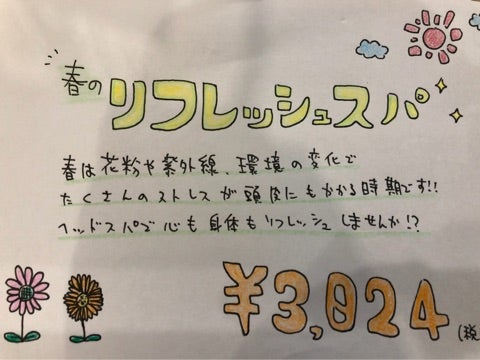 春の
リフレッシュスパ
春は花粉や紫外線、環境の変化で
たくさんのストレスが頭皮にもかかる時期です!!
ヘッドスパで心も身体もリフレッシュしませんか!?
¥3,024
(税